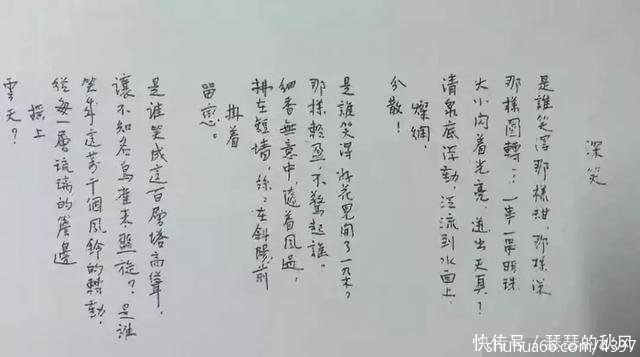 深笑
是誰笑得那樣甜，那樣深
那樣圓轉？：一串一串明珠
大小闪着光亮，迸出天真？
清泉底浮動，泛流到水面上，
燦爛，
分散！
是誰笑得好花兒開了一朵？
那樣輕盈不驚起誰。
細香無意中，隨着風過，
拂在短墙，丝：在斜陽前
掛着
留戀。
是誰笑成這百層塔高聳，
讓不知名鳥雀来盤旋？是誰
笑成這萬千個風鈴的轉動，
從每一層琉璃的簷邊
摇上
雲天？
快传号／琴琴的秋风
shuhua66.com/4397